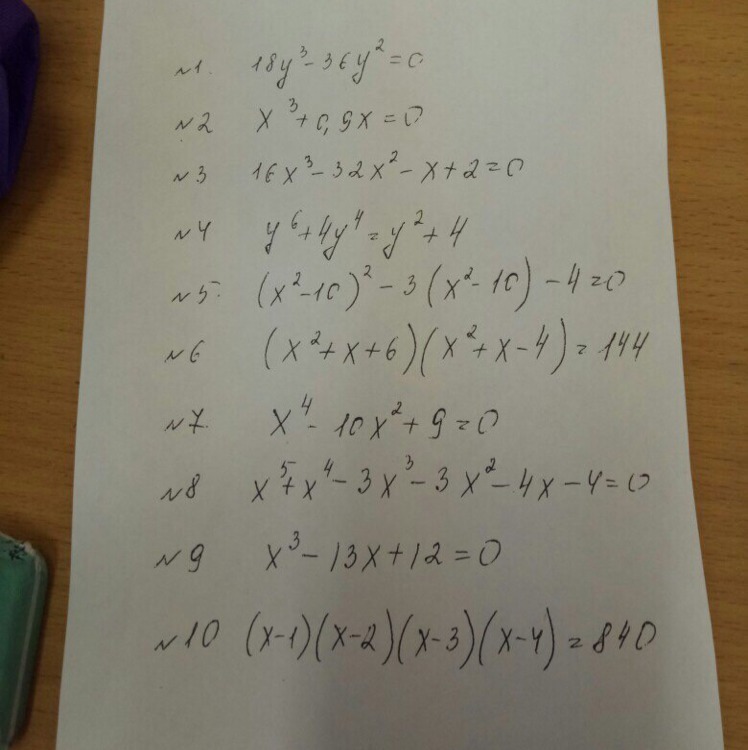 №1. 18y³ - 36y² = 0
№2 x³ + 0,9x = 0
№3 16x³ - 32x² - x + 2 = 0
№4 y⁶ + 4y⁴ = y² + 4
№5. (x² - 10)² - 3(x² - 10) - 4 = 0
№6 (x² + x + 6)(x² + x - 4) = 144
№7. x⁴ - 10x² + 9 = 0
№8 x⁵ + x⁴ - 3x³ - 3x² - 4x - 4 = 0
№9 x³ - 13x + 12 = 0
№10 (x-1)(x-2)(x-3)(x-4) = 840